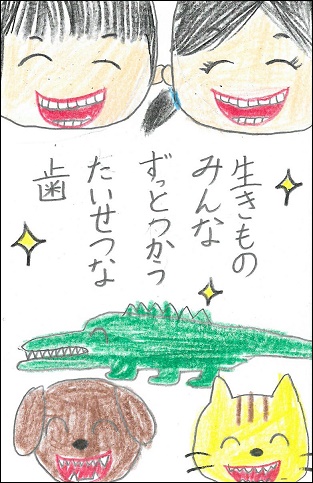 生きもの
みんな
ずっとつかう
たいせつな
歯